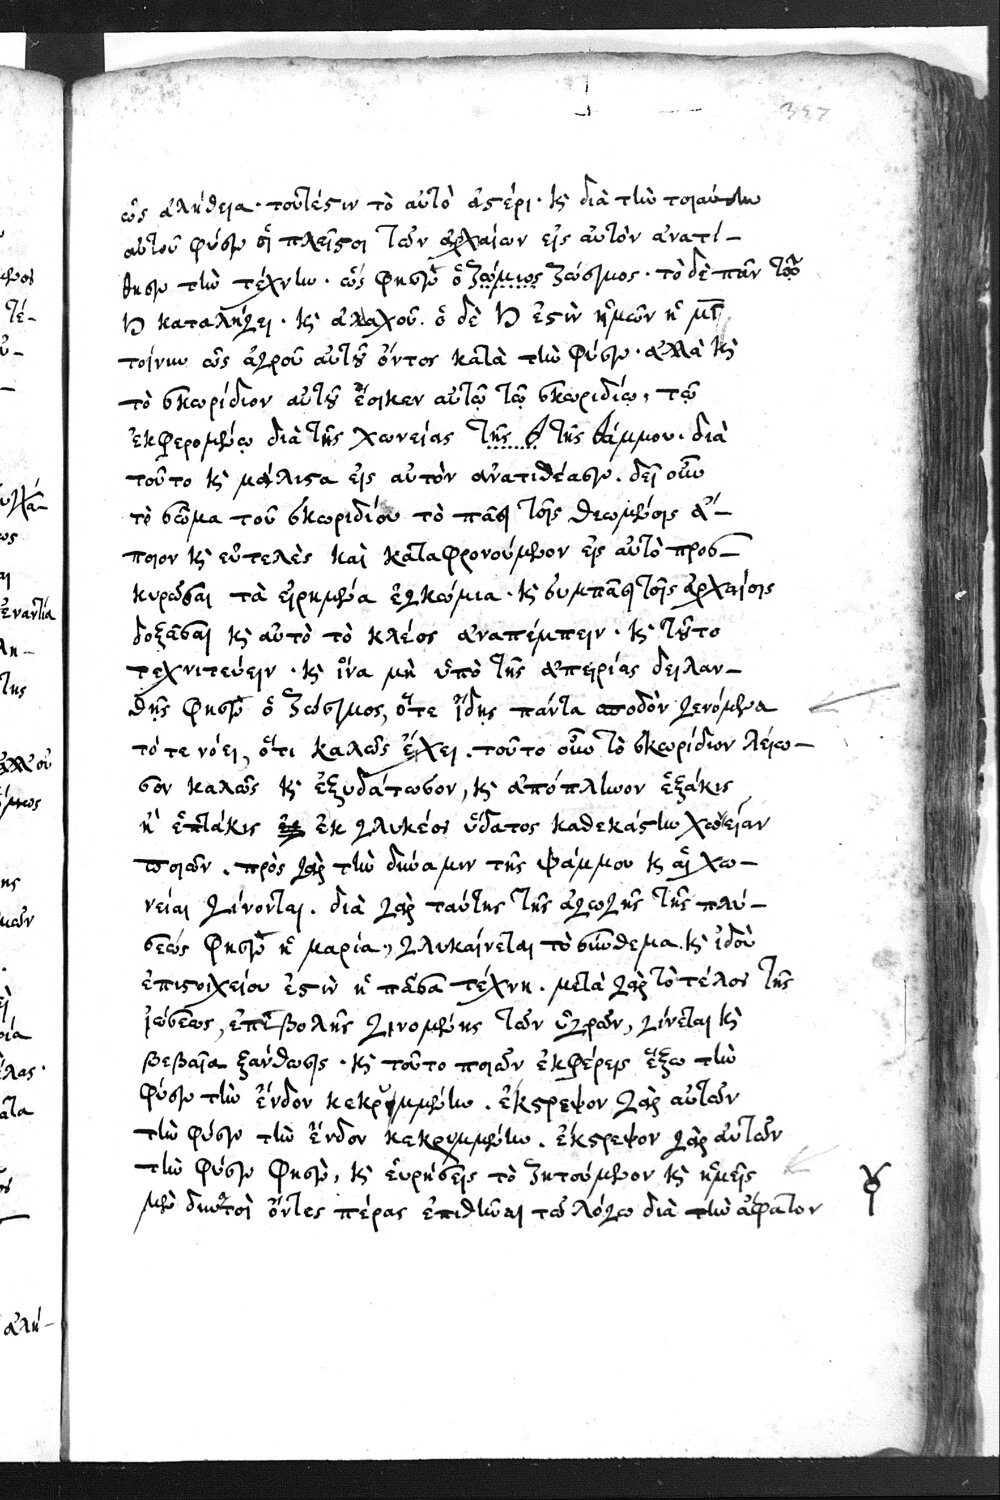 ὡς ἀλήθεια· τουτέστιν τὸ αὐτὸ ἀστέρι· καὶ διὰ τὴν τοιαύτην
αὐτοῦ φύσιν οἱ πλεῖστοι τῶν ἀρχαίων εἰς αὐτὸν ἀνατί-
θησιν τὴν τέχνην. ὥς φησιν ὁ Ζώσιμος· τὸ δὲ πᾶν
καταλήγει. καὶ ἀλλαχοῦ. ὁ δὲ ἐστὶν ἡμῶν ἡ
τοίνυν ὡς ἀργοῦ αὐτοῦ ὄντος κατὰ τὴν φύσιν· ἀλλὰ καὶ
τὸ σκωρίδιον αὐτοῦ ἔοικεν αὐτῷ τῷ σκωριδίῳ, τῷ
ἐκφερομένῳ διὰ τῆς χωνείας τῆς ψάμμου. διὰ
τοῦτο καὶ μάλιστα εἰς αὐτὸν ἀνατιθέασιν. δεῖ οὖν
τὸ σῶμα τοῦ σκωριδίου τὸ πᾶσι τοῖς θεωμένοις ἄ-
ποιον καὶ εὐτελὲς καὶ καταφρονούμενον εἰς αὐτὸ προσ-
κυρῶσαι τὰ εἰρημένα ἐγκώμια. καὶ συμπᾶσι τοῖς ἀρχαίοις
δοξᾶσαι καὶ αὐτὸ τὸ κλέος ἀναπέμπειν. καὶ τοῦτο
τεχνιτεύειν. καὶ ἵνα μὴ ὑπὸ τῆς ἀπειρίας δειλαν-
θῇς φησὶν ὁ Ζώσιμος, ὅτε ἴδῃς πάντα σποδὸν γενόμενα
τότε νόει, ὅτι καλῶς ἔχει. τοῦτο οὖν τὸ σκωρίδιον λείω-
σον καλῶς καὶ ἐξυδάτωσον, καὶ ἀπόπλυνον ἑξάκις
ἢ ἑπτάκις ἐκ γλυκέος ὕδατος καθεκάστην χωνείαν
ποιῶν. πρὸς γὰρ τὴν δύναμιν τῆς ψάμμου καὶ αἱ χω-
νείαι γίνονται. διὰ γὰρ ταύτης τῆς ἀγωγῆς τῆς πλύ-
σεως φησὶν ἡ μαρία, γλυκαίνεται τὸ σύνθεμα. καὶ ἰδοὺ
ἐπιστοιχείου ἐστὶν ἡ πᾶσα τέχνη. μετὰ γὰρ τὸ τέλος τῆς
ἰώσεως, ἐπιβολῆς γινομένης τῶν ὑγρῶν, γίνεται καὶ
βεβαῖα ξάνθωσις. καὶ τοῦτο ποιῶν ἐκφέρεις ἔξω τὴν
φύσιν τὴν ἔνδον κεκρυμμένην. ἔκστρεψον γὰρ αὐτῶν
τὴν φύσιν τὴν ἔνδον κεκρυμμένην. ἔκστρεψον γὰρ αὐτῶν
τὴν φύσιν φησὶν, καὶ εὑρήσεις τὸ ζητούμενον καὶ ἡμεῖς
μὲν δυνατοὶ ὄντες πέρας ἐπιθεῖναι τῷ λόγῳ διὰ τὴν ἄφατον